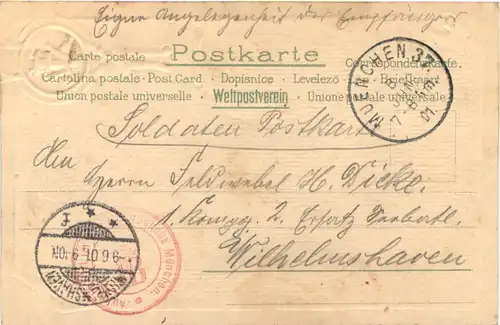 Eigne Angelegenheit des Empfängers
Carte postale · Postkarte · Correspondenzkarte
Cartolina postale · Post Card · Dopisnice · Levelező Lap · Briefkaart
Union postale universelle · Weltpostverein · Unione postale universale
MUENCHEN 37
8 JUN
7-8
01
Soldaten Postkarte
An
Herrn Feldwebel H. Dicke.
1. Kompg. 2. Ersatz
Wilhelmshaven
WILHELMSHAVEN
9 6 01 9-10N
München